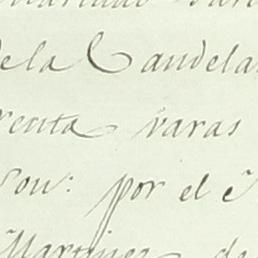 de la Candela
renta varas
Son: por el
Martinez de